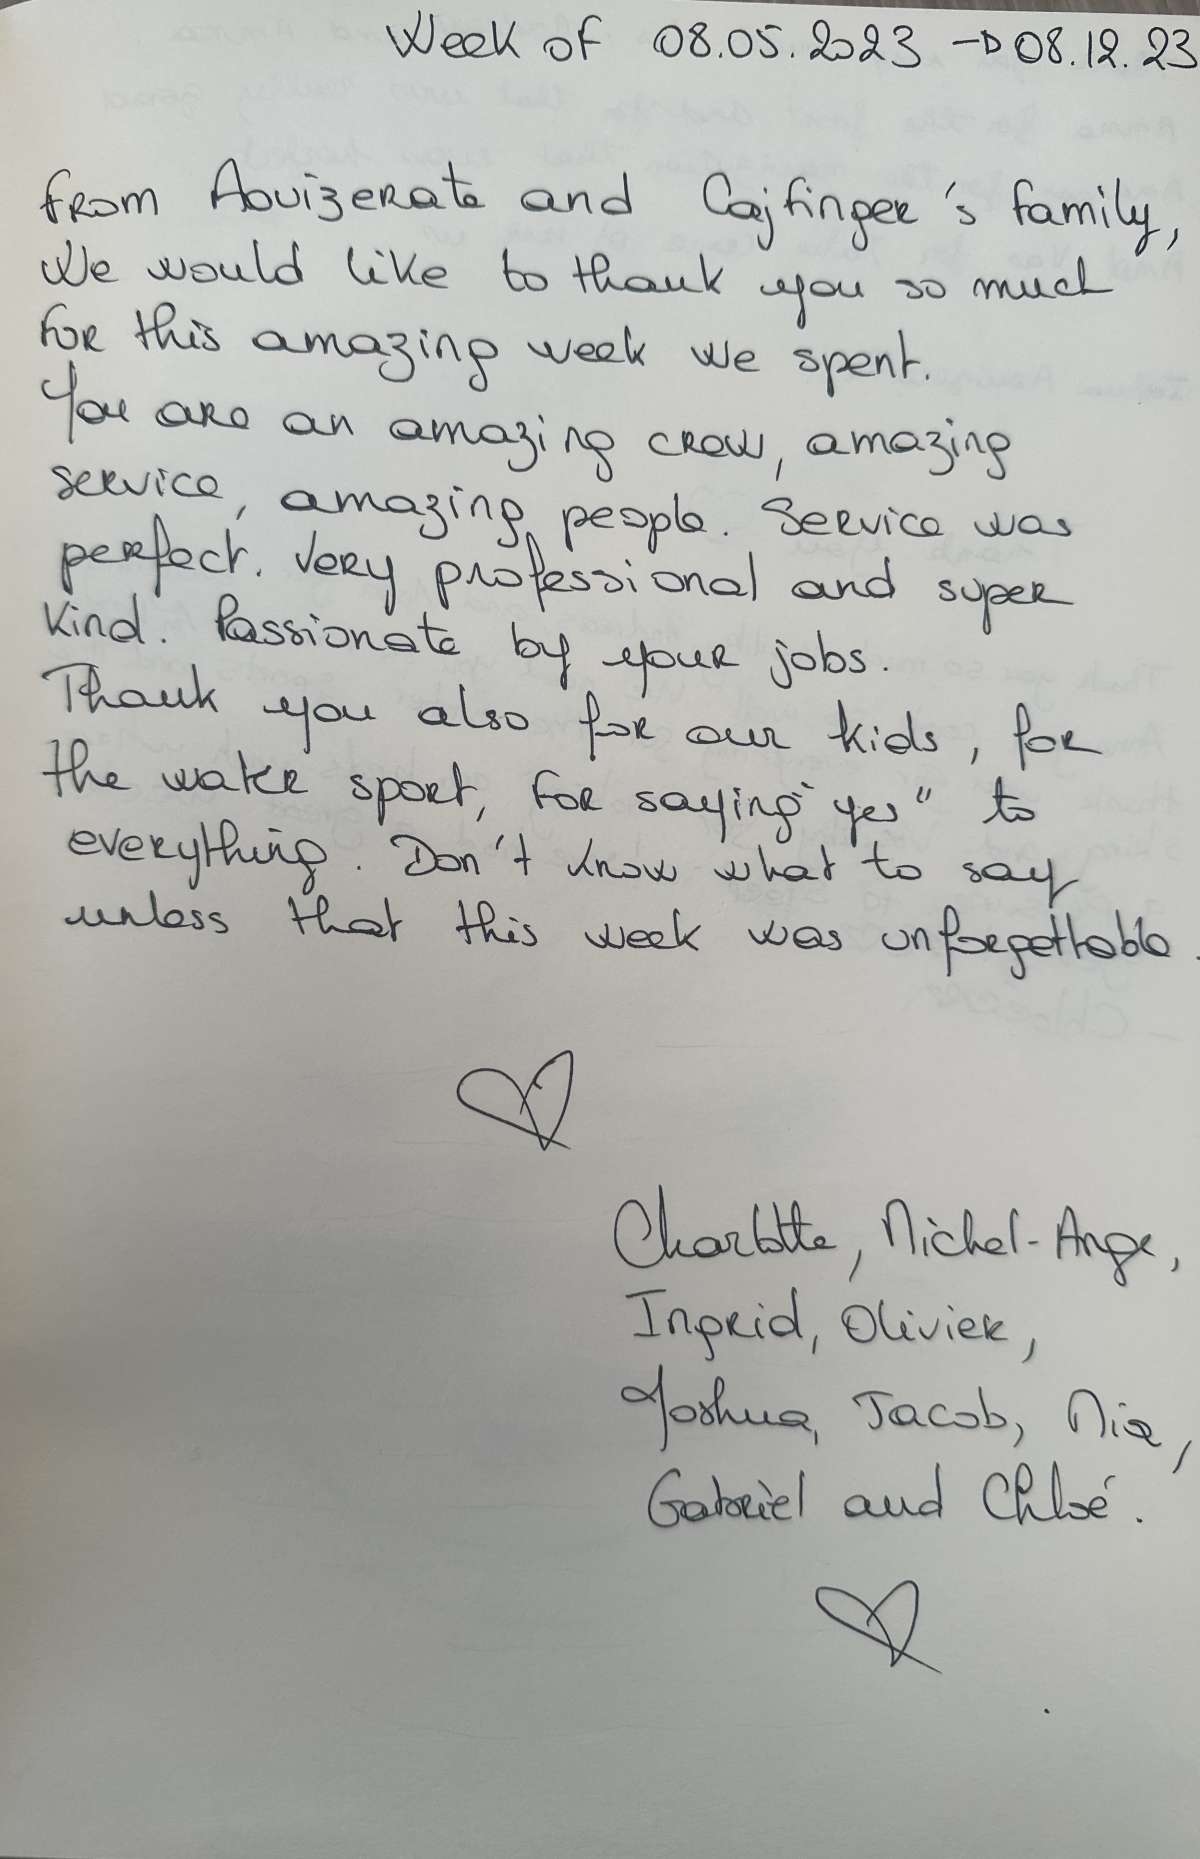 Week of 08.05.2023 → 08.12.23
from Aouizerate and Cajfinger's family,
We would like to thank you so much
for this amazing week we spent.
You are an amazing crew, amazing
service, amazing people. Service was
perfect. Very professional and super
kind. Passionate by your jobs.
Thank you also for our kids, for
the water sport, for saying "yes" to
everything. Don't know what to say
unless that this week was unforgettable.
Charlotte, Michel-Ange,
Ingrid, Olivier,
Yoshua, Jacob, Nia,
Gabriel and Chloé.